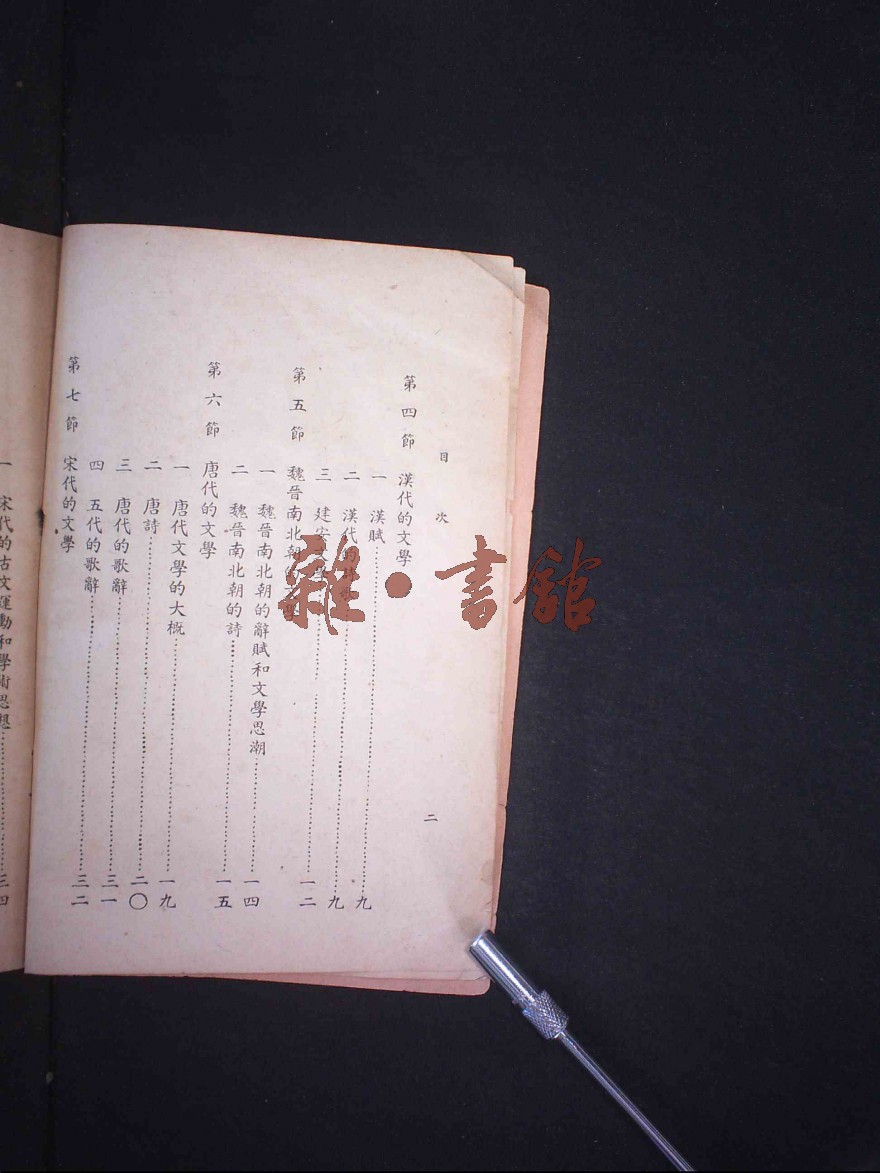 目次
二
第四節 漢代的文學
一 漢賦……九
二 漢代的詩歌……九
三 建安文學……一二
第五節 魏晉南北朝的文學
一 魏晉南北朝的辭賦和文學思潮……一四
二 魏晉南北朝的詩……一五
第六節 唐代的文學
一 唐代文學的大概……一九
二 唐詩……二〇
三 唐代的歌辭……三一
四 五代的歌辭……三二
第七節 宋代的文學
一 宋代的古文運動和學術思想……三四
雜·書館